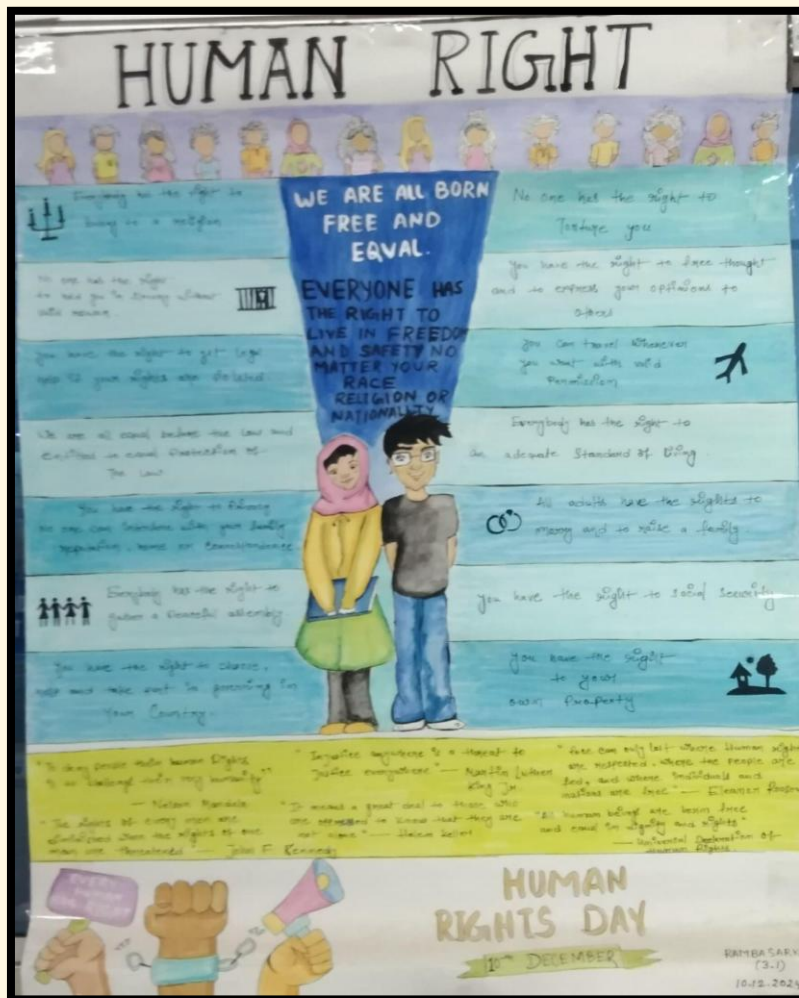 HUMAN RIGHT
WE ARE ALL BORN
FREE AND
EQUAL.
EVERYONE HAS
THE RIGHT TO
LIVE IN FREEDOM
AND SAFETY NO
MATTER YOUR
RACE
RELIGION OR
NATIONALITY
Everybody has the right to
belong to a religion
No one has the right
to hold you in
You have the right to get legal
help if your rights are
We are all equal before the law and
entitled to equal protection of
The Law
You have the right to Privacy
No one can interfere with your family
reputation, home or Correspondence
Everybody has the right to
a Peaceful assembly
You have the right to
and take part in governing in
Your Country.
No one has the right to
Torture you
You have the right to free thought
and to express your opinions to
others
You can travel wherever
you want with valid
Permission
Everybody has the right to
an adequate Standard of living
All adults have the rights to
marry and to raise a family
you have the right to social security
you have the right
to your
own Property
"To deny people their human Rights
is to challenge their very humanity"
— Nelson Mandela
"The rights of every man are
diminished when the rights of one
man are threatened — John F. Kennedy
"Injustice anywhere is a threat to
justice everywhere" — Martin Luther
King Jr.
"It means a great deal to those who
are oppressed to know that they are
not alone" —
can only last where Human
are respected, where the people are
and where individuals and
nations are free" — Eleanor
"All human beings are born free
and equal in dignity and rights"
— Universal Declaration of
Human Rights.
EVERY
HUMAN
HAS RIGHT
HUMAN
RIGHTS DAY
10th DECEMBER
(3.1)
10.12.202